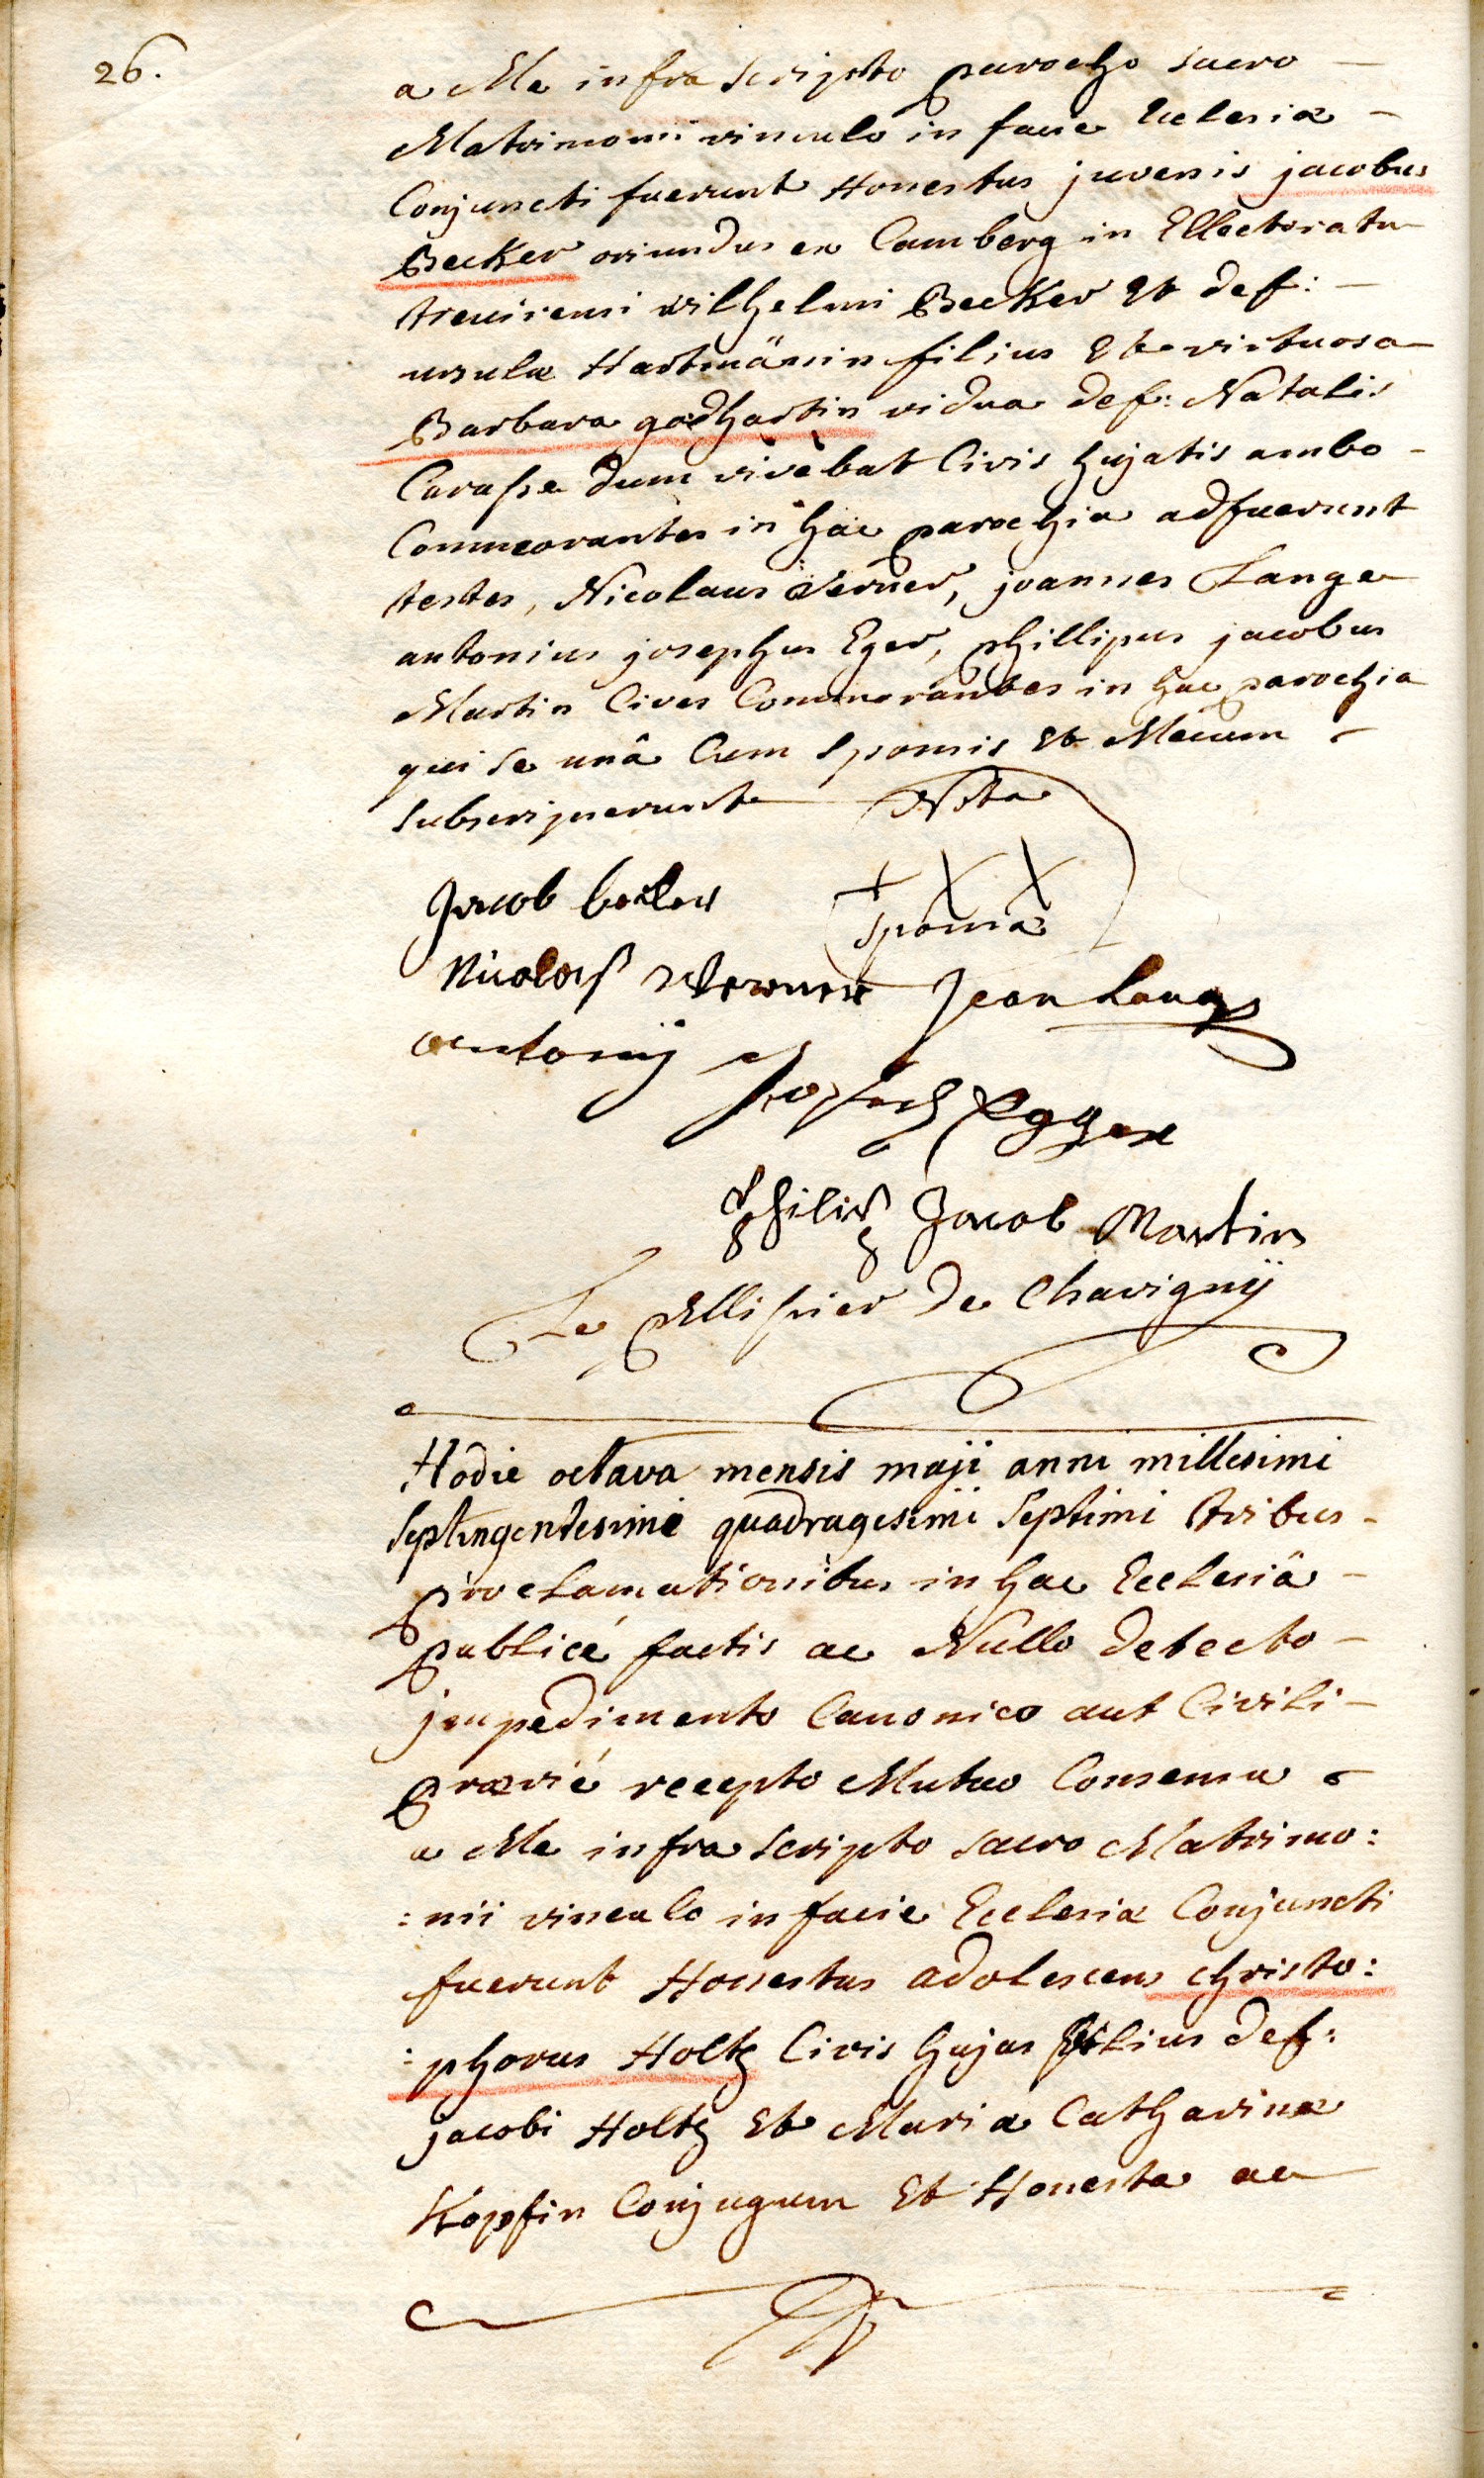 26.
a Me infra scripto parocho sacro –
Matrimonii vinculo in facie Ecclesiæ –
Conjuncti fuerunt Honestus juvenis jacobus
Becker oriundus ex Camberg in Ellectoratu
trevirensi Wilhelmi Becker Et def: –
ursulæ Hartmänin filius Et virtuosa
Barbara godhartin vidua def: Natalis
Carasse dum vivebat Civis hujatis ambo –
Commorantes in hac parochia adfuerunt
testes, Nicolaus Verner, joannes Lange
antonius josephus Eger, phillipus jacobus
Martin Cives Commorantes in hac parochia
qui se unâ Cum sponsis Et Mecum –
subscripserunt Nota
Jacob becker + X X
sponsæ
Nicolas Werner Jean Lang
antonij
Joseph Egger
Philips Jacob Martin
Le Pellissier De Chavignÿ
Hodie octava mensis maji anni millesimi
septingentesimi quadragesimi septimi tribus –
proclamationibus in hac Ecclesiâ –
publicé factis ac Nullo detecto –
jmpedimento Canonico aut Civili –
prævié recepto Mutuo Consensu –
a Me infra scripto sacro Matrimo:
:nii vinculo in facie Ecclesiæ Conjuncti
fuerunt Honestus adolescens christo:
:phorus Holtz Civis hujas filius def:
jacobi Holtz Et Mariæ Catharinæ
Köpfin Conjugum Et Honesta ac